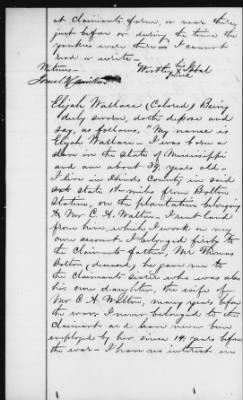 at Claimants farm, or near there,
just before or during the time the
yankees were there — I cannot
read or write —
Witness — his
Worthy X
mark
Elijah Wallace (Colored) Being
duly sworn, doth depose and
say, as follows, "My name is
Elijah Wallace — I was born a
slave in the state of Mississippi
and am about 39 years old —
I live in Hinds County in said
state miles from Bolton
Station, on the plantation belonging
to Mr C. A. Walton — I rent land
from him, which I work on my
own account. I belonged firstly to
the Claimants father, Mr Thomas
deceased, he gave me to
the Claimants sister who was also
his own daughter, the wife of
Mr C. A. Walton, many years before
the war. I never belonged to the
Claimant and have never been
employed by her since 14 years before
the war — I have no interest in